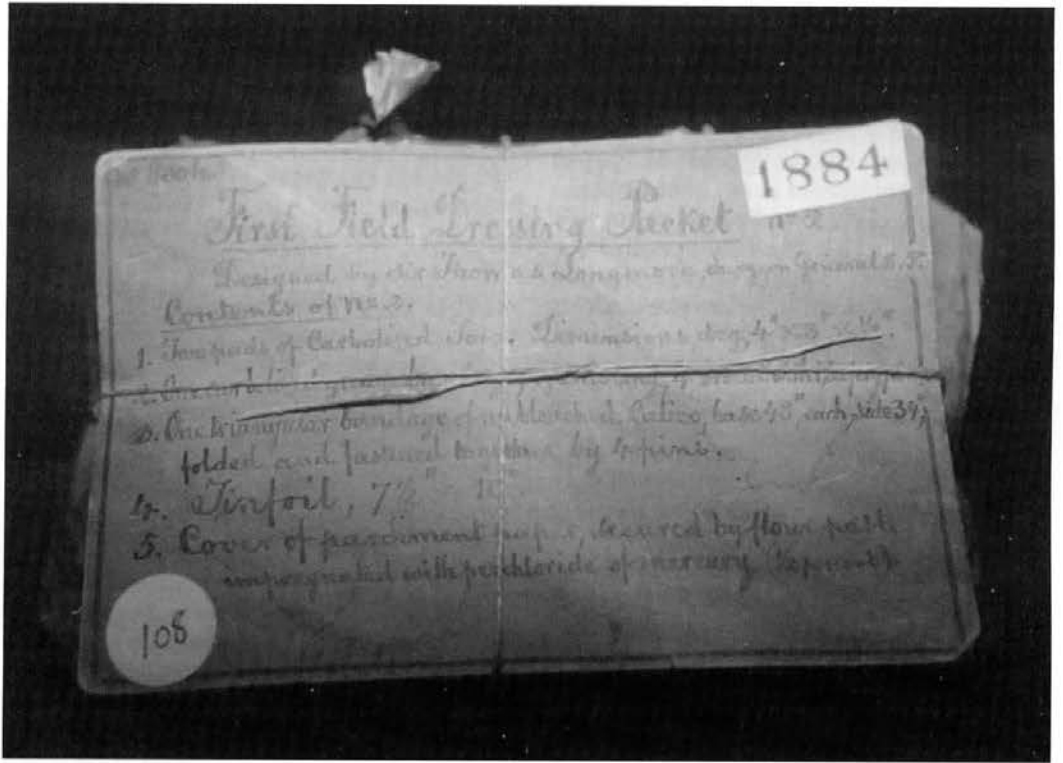 1884
First Field Dressing Packet No 2
Designed by Sir Thomas Longmore, Surgeon General
Contents of No 2.
1. Two pads of Carbolized Tow. Dimensions 4" × 3" ×
2. One carbolized gauze
3. One triangular bandage of unbleached Calico, base 48", each side 34",
folded and fastened together by 4 pins.
4. Tinfoil, 7½"
5. Cover of parchment paper, secured by flour paste
impregnated with perchloride of mercury
108